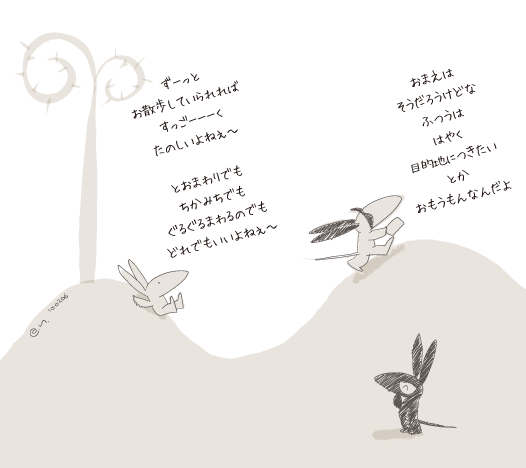 おまえは
そうだろうけどな
ふつうは
はやく
目的地につきたい
とか
おもうもんなんだよ
ずーっと
お散歩していられれば
すっごーーーく
たのしいよねぇ〜
とおまわりでも
ちかみちでも
ぐるぐるまわるのでも
どれでもいいよねぇ〜
@.n. 100206